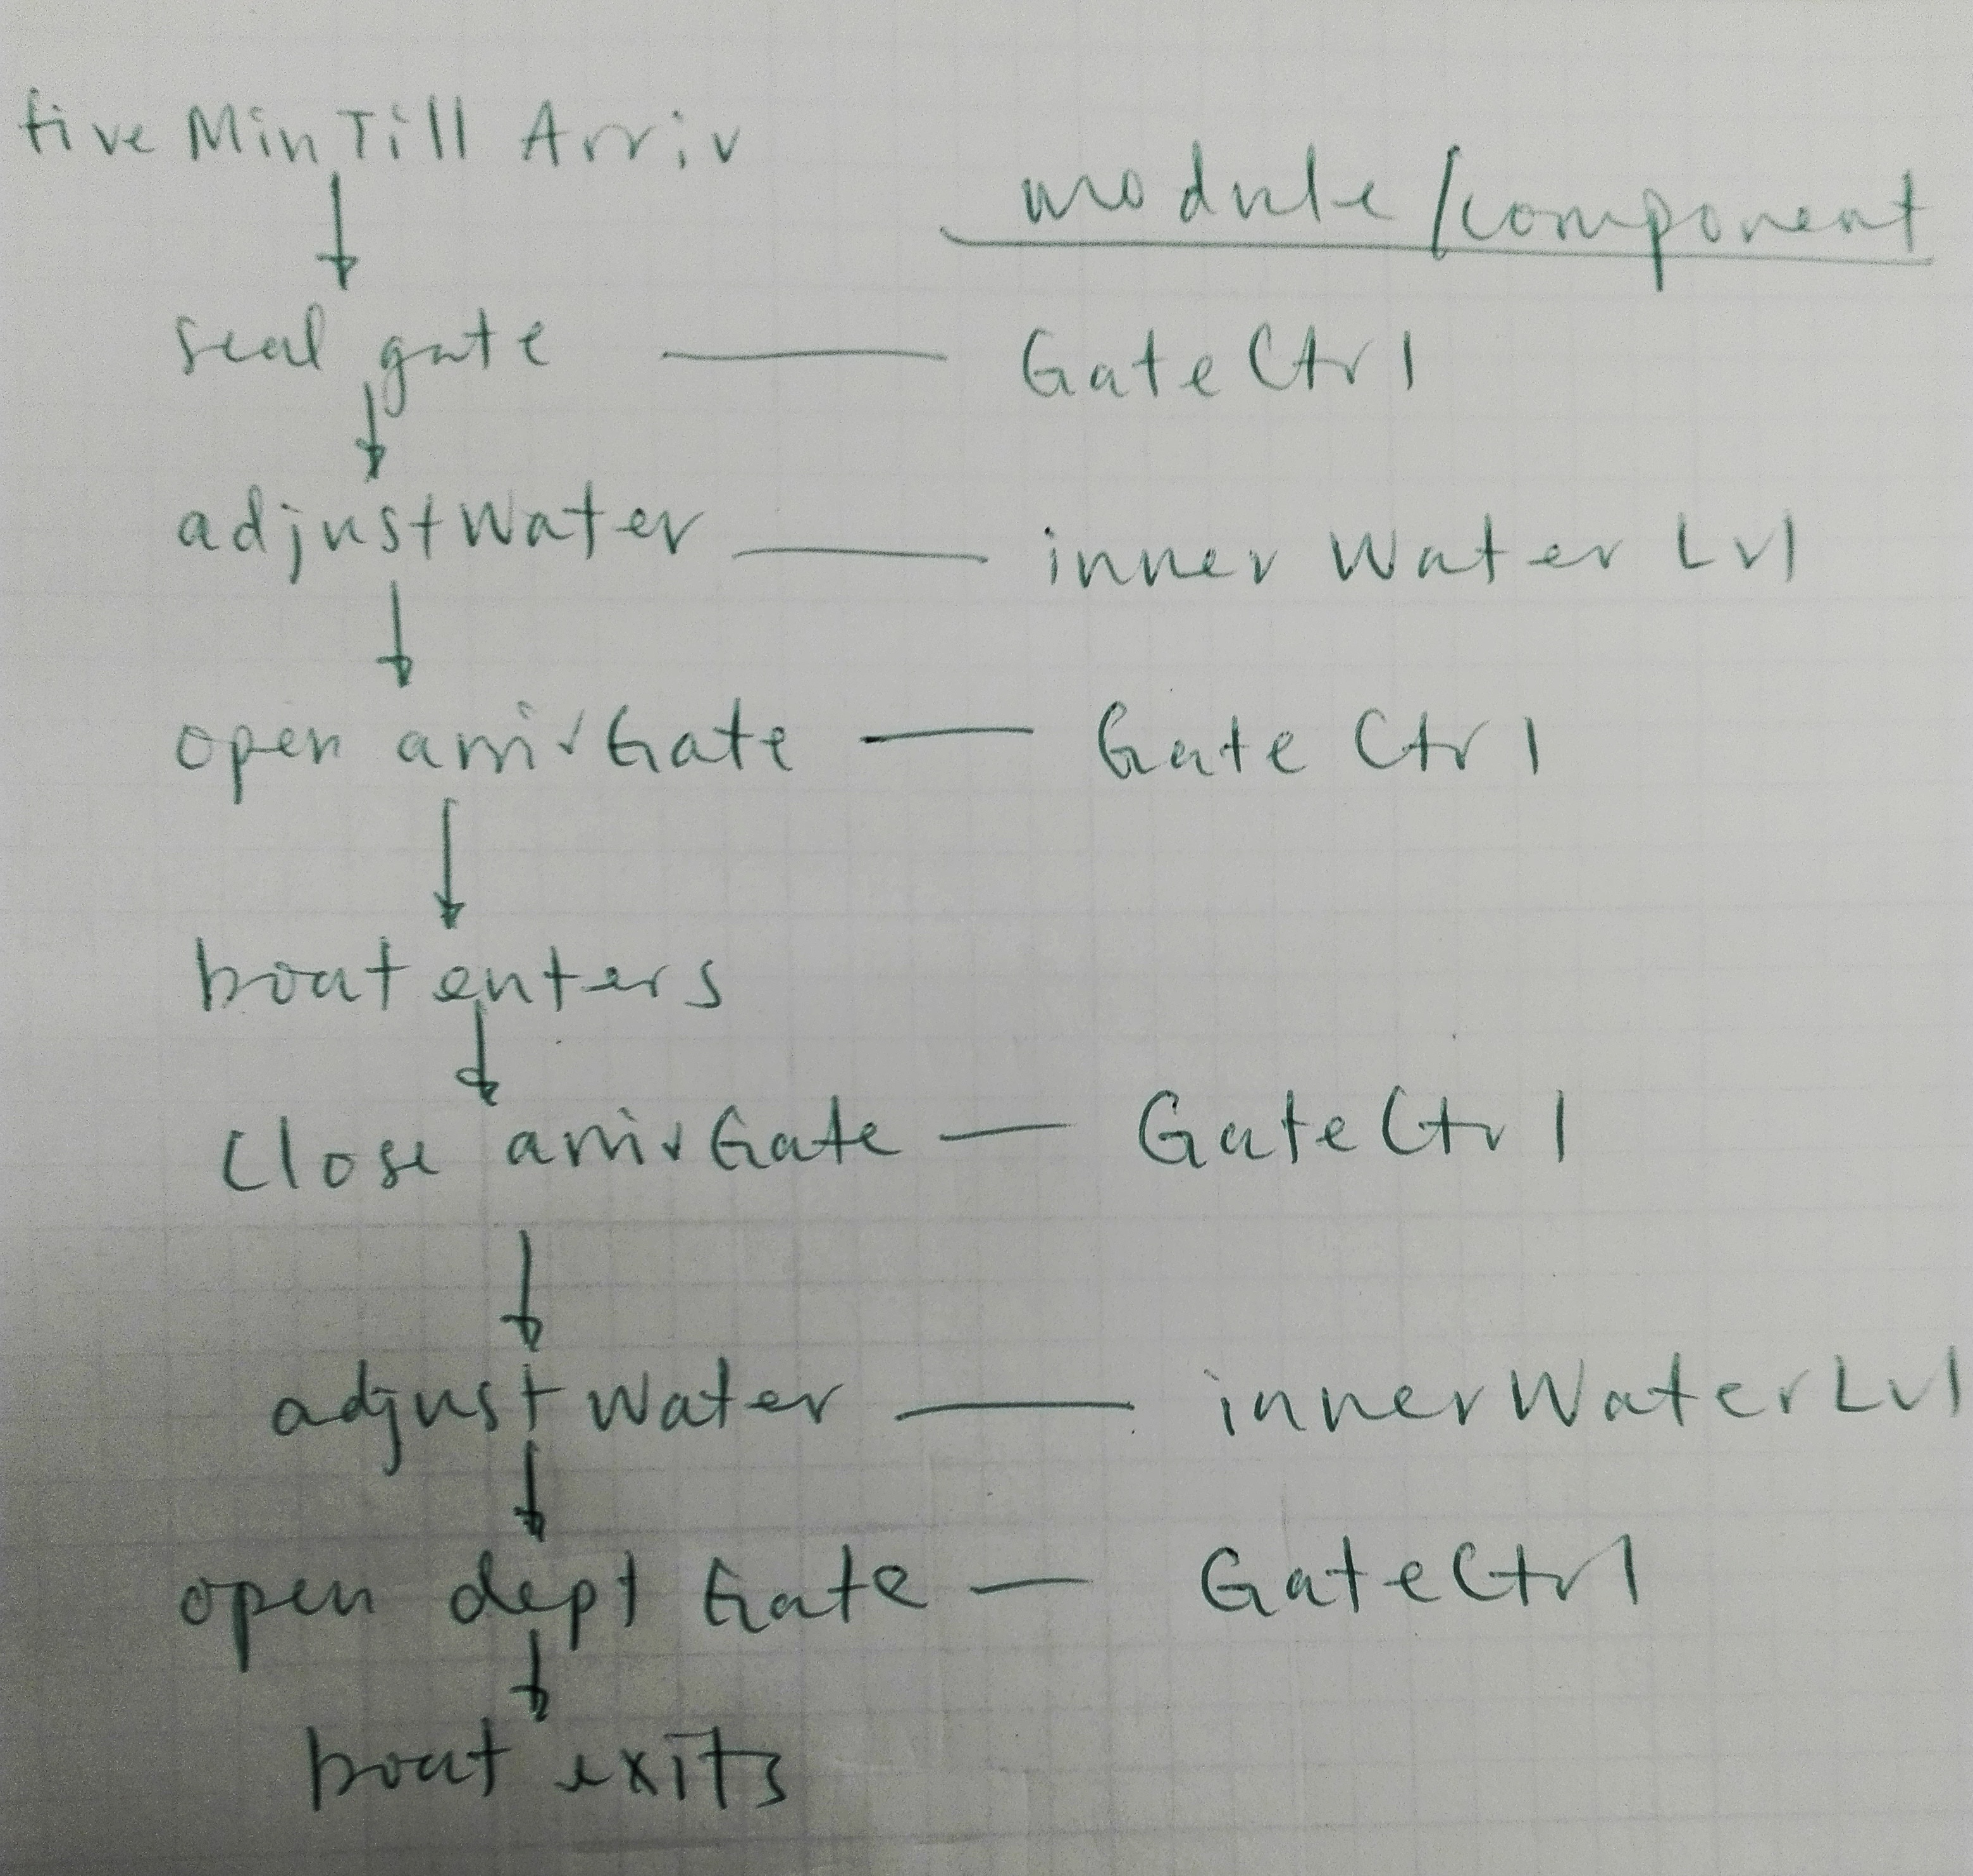 fiveMinTill Arriv
module/component
seal gate — GateCtrl
adjustWater — inner Water Lvl
open arrivGate — Gate Ctrl
boat enters
Close arrivGate — GateCtrl
adjust Water — innerWaterLvl
open dept Gate — GateCtrl
boat exits